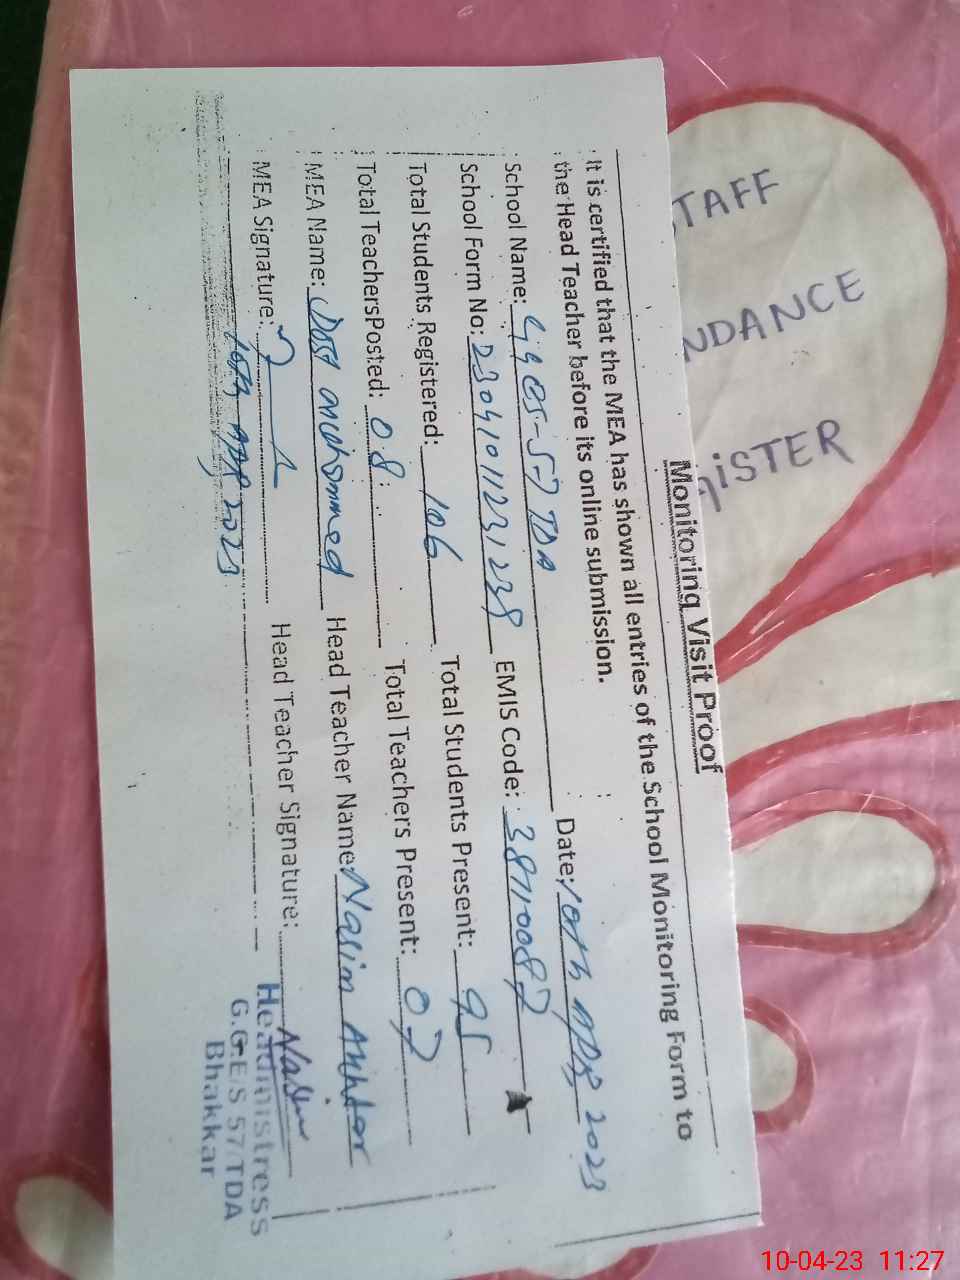 TAFF
NDANCE
GiSTER
Monitoring Visit Proof
It is certified that the MEA has shown all entries of the School Monitoring Form to
the Head Teacher before its online submission.
School Name: Date: 10th APR 2023
School Form No: EMIS Code: 38110087
Total Students Registered: 106 Total Students Present: 95
Total TeachersPosted: 08 Total Teachers Present: 07
MEA Name: Dost Muhammed Head Teacher Name: Nasim Akhtar
MEA Signature: Head Teacher Signature:
10th APR 2023
Headmistress
G.G.E/S 57/TDA
Bhakkar
10-04-23 11:27